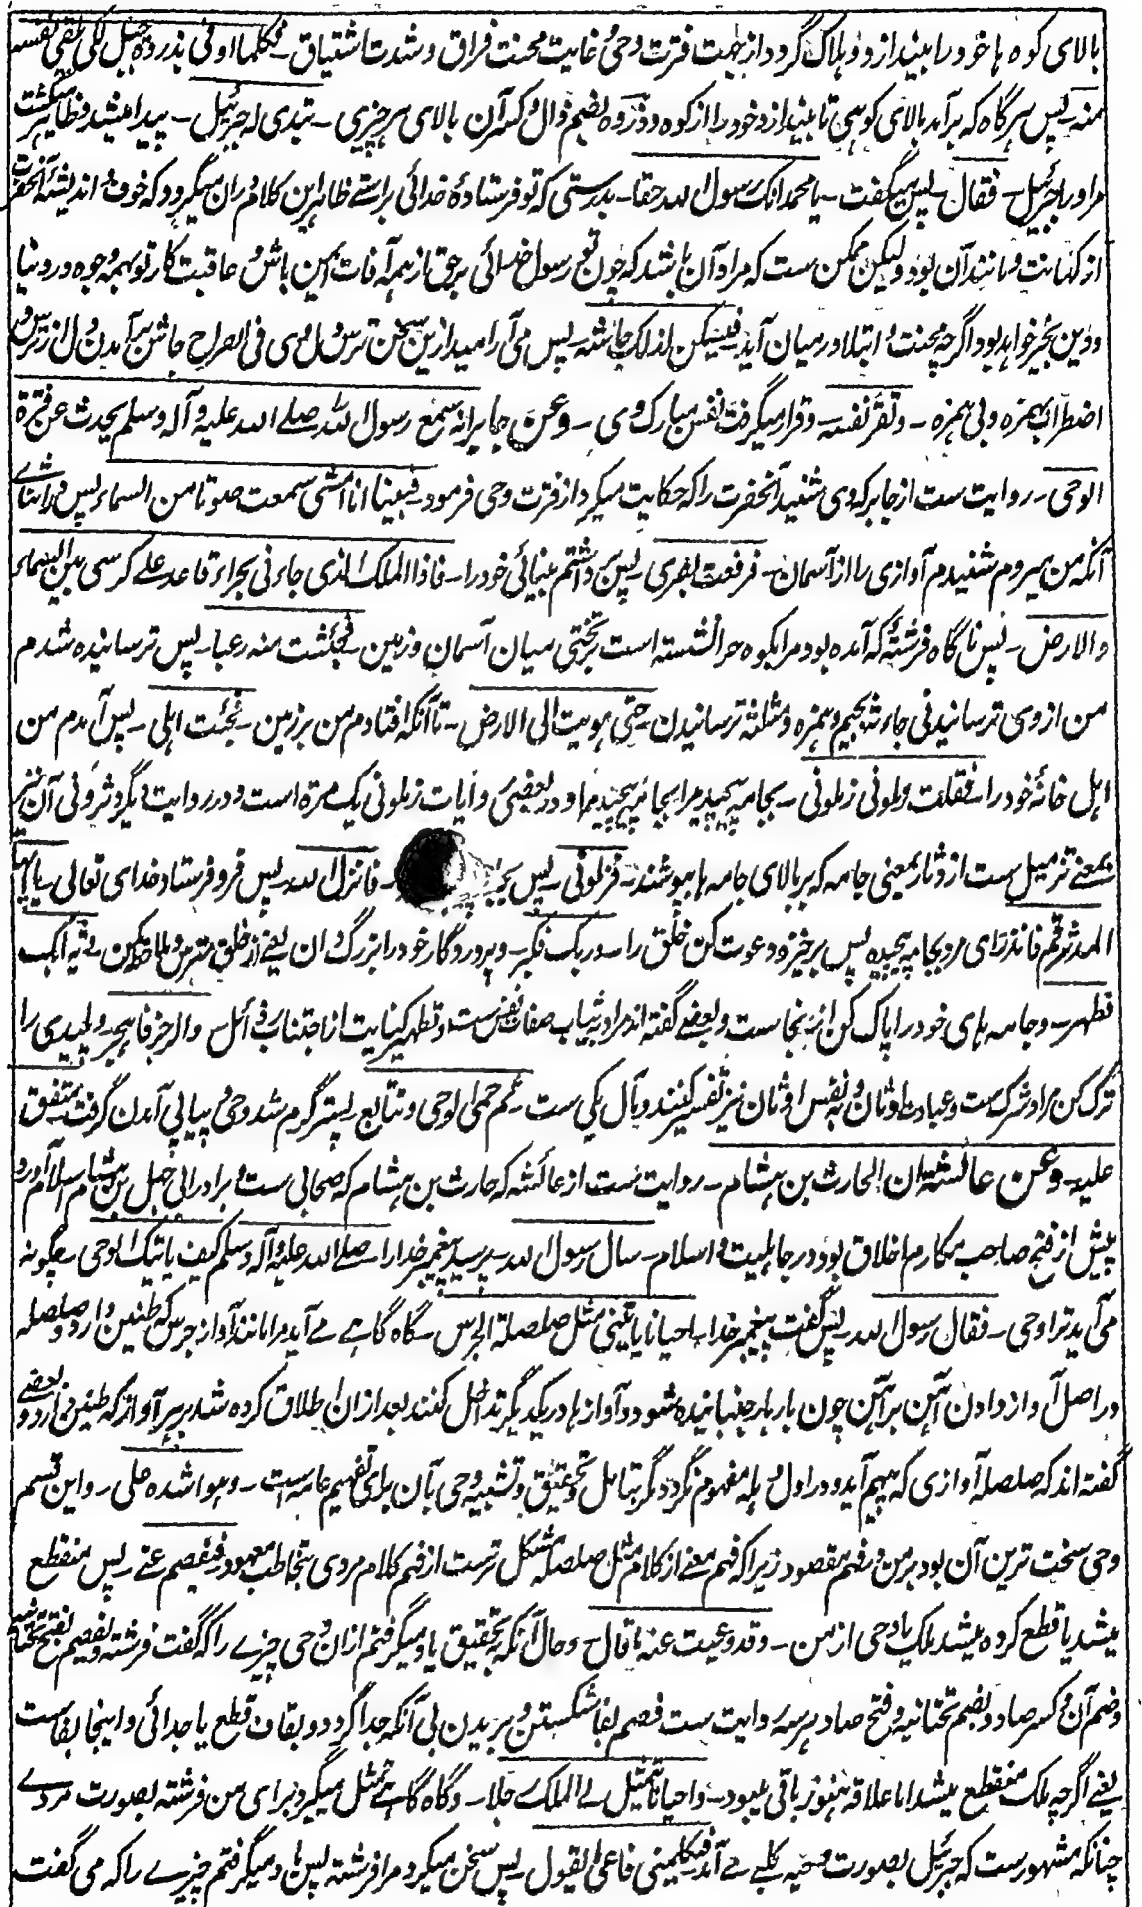 بالای کوه ها خود را بیندازد و هلاک گردد از جهت فترت وحی و غایت محنت فراق و شدت اشتیاق ـ فکلما اوفی بذروة جبل لکی یلقی نفسه
منه ـ پس هر گاه که بر آمد بالای کوهی تا بیندازد خود را از کوه و ذروه بضم ذال و کسر آن بالای هر چیزی ـ تبدی له جبرئیل ـ پیدا میشد و ظاهر میگشت
مر او را جبرئیل ـ فقال ـ پس میگفت ـ یا محمد انک رسول الله حقا ـ بدرستی که تو فرستادهٔ خدائی براستے ظاهر این کلام در ان میگرود که خوف و اندیشهٔ آنحضرت
از کهانت و مانند آن بود و لیکن ممکن ست که مراد آن باشد که چون تو رسول خدائی بر حق از همه آفات ایمن باش و عاقبت کار تو بهمه وجوه در دنیا
و دین بخیر خواهد بود اگر چه محنت و ابتلا در میان آید ـ فیسکن لذلک جاشه ـ پس می آرامید ازین سخن ترس دل وی فی الصراح جاش بر آمدن دل از ترس و
اضطراب بهمزه و بی همزه ـ وتقر نفسه ـ و قرار میگرفت نفس مبارک وی ـ وعن جابر انه سمع رسول الله صلے الله علیه و آله وسلم یحدث عن فترة
الوحی ـ روایت ست از جابر که وی شنید آنحضرت را که حکایت میکرد از فترت وحی فرمود ـ فبینا انا امشی سمعت صوتا من السماء پس در اثنای
آنکه من میروم شنیدم آوازی را از آسمان ـ فرفعت بصری ـ پس برداشتم بینائی خود را ـ فاذا الملک الذی جاءنی بحراء قاعد علے کرسی بین السماء
والارض ـ پس ناگاه فرشتهٔ که آمده بود مرا بکوه حرا نشسته است بر تختی میان آسمان و زمین ـ فجئثت منه رعبا ـ پس ترسانیده شدم
من از وی ترسانیدنی جاءث بجیم و همزه و مثلثه ترسانیدن ـ حتی هویت الی الارض ـ تا آنکه افتادم من بر زمین ـ فجئت اهلی ـ پس آمدم من
اهل خانهٔ خود را ـ فقلت زملونی زملونی ـ بجامه پیچید مرا بجامه پیچید مرا و در بعضی روایات زملونی یک مره است و در روایت دیگر دثرونی آن نیز
بمعنے تزمیل ست از دثار بمعنی جامه که بر بالای جامه ها پوشند ـ فزملونی ـ پس ـ فانزل الله ـ پس فرو فرستاد خدای تعالی ـ یا ایها
المدثر قم فانذر ای مرد بجامه پیچیده پس برخیز و دعوت کن خلق را ـ وربک فکبر ـ و پروردگار خود را بزرگ دان یعنے از خلق مترس و ملاحظه مکن ـ وثیابک
فطهر ـ و جامه های خود را پاک کن از نجاست و بعضے گفته اند مراد به ثیاب صفات نفس ست و تطهیر کنایت از اجتناب رذائل ست والرجز فاهجر و پلیدی را
ترک کن مراد شرک ست و عبادت اوثان و به نفس اوثان نیز تفسیر کنند و مآل یکی ست ـ ثم حمی الوحی وتتابع ـ پستر گرم شد وحی و پیاپی آمدن گرفت متفق
علیه ـ وعن عائشة ان الحارث بن هشام ـ روایت ست از عائشه که حارث بن هشام که صحابی ست و برادر ابی جهل بن هشام اسلام آورد
پیش از فتح صاحب مکارم اخلاق بود در جاهلیت و اسلام ـ سال رسول الله ـ پرسید پیغمبر خدا را ـ صلے الله علیه و آله وسلم کیف یاتیک الوحی ـ چگونه
می آید ترا وحی ـ فقال رسول الله ـ پس گفت پیغمبر خدا ـ احیانا یاتینی مثل صلصلة الجرس ـ گاه گاهے مے آید مرا مانند آواز جرس که طنین دارد و صلصله
در اصل آواز دادن آهن بر آهن چون بار بار جنبانیده شود و آوازها در یکدیگر تداخل کنند بعد ازان اطلاق کرده شد بر هر آواز که طنین دارد و بعضے
گفته اند که صلصله آوازی که بهم آید و در اول وهله مفهوم نگردد مگر بتامل و تعمق و تشبیه وحی بآن برای تفهیم عامه است ـ وهو اشده علی ـ و این قسم
وحی سخت ترین آن بود بر من در فهم مقصود زیرا که فهم معنے از کلام مثل صلصله مشکل ترست از فهم کلام مردی بتخاطب معهود ـ فیفصم عنے ـ پس منقطع
میشد یا قطع کرده میشد ملک یا وحی از من ـ وقد وعیت عنه ما قال ـ و حال آنکه بتحقیق یاد میگرفتم ازان وحی چیزے را که گفت فرشته و یفصم بفتح تحتانیه
و ضم آن و کسر صاد و بضم تحتانیه و فتح صاد بر سه روایت ست فصم بفا شکستن و بریدن بی آنکه جدا گردد و بقاف قطع با جدائی و اینجا بفاست
یعنے اگر چه ملک منقطع میشد اما علاقه هنوز باقی میبود ـ واحیانا یتمثل لے الملک رجلا ـ و گاه گاهے متمثل میگردد برای من فرشته بصورت مردے
چنانکه مشهورست که جبرئیل بصورت دحیه کلبے مے آمد فیکلمنی فاعی ما یقول ـ پس سخن میکرد مرا فرشته پس یاد میگرفتم چیزے را که می گفت